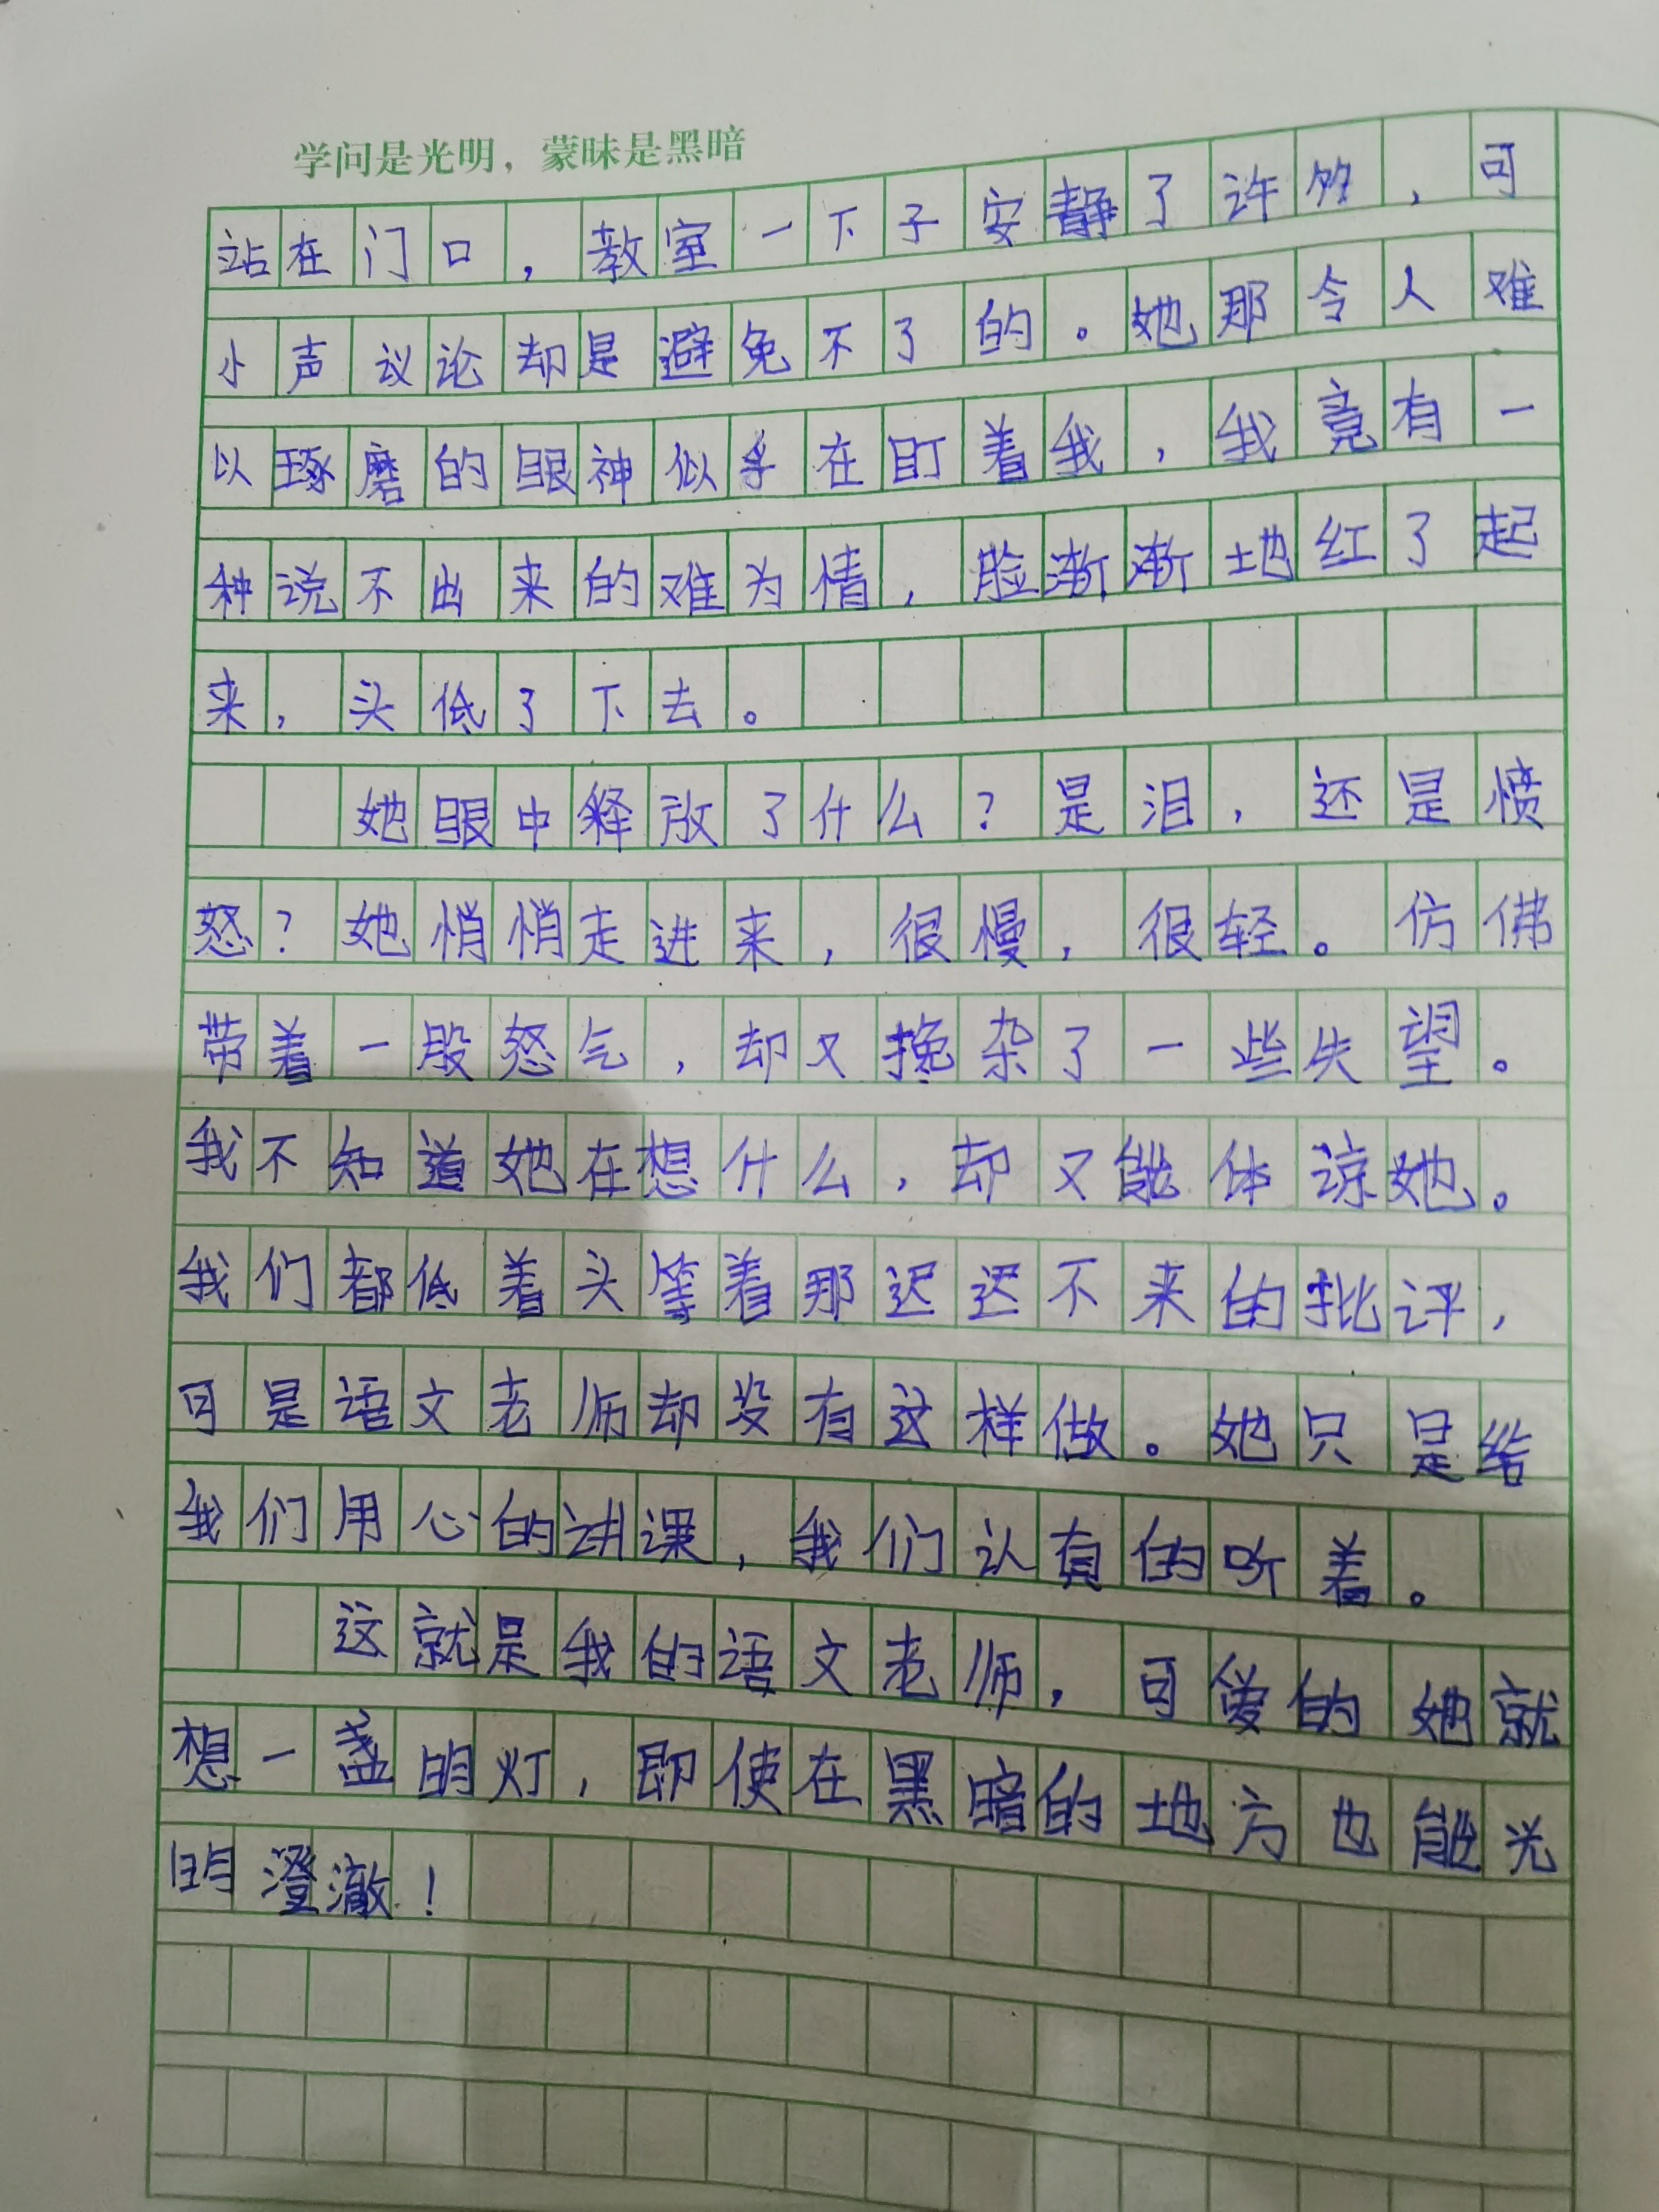 学问是光明，蒙昧是黑暗
站在门口，教室一下子安静了许多，可
小声议论却是避免不了的。她那令人难
以琢磨的眼神似乎在盯着我，我竟有一
种说不出来的难为情，脸渐渐地红了起
来，头低了下去。
她眼中释放了什么？是泪，还是愤
怒？她悄悄走进来，很慢，很轻。仿佛
带着一股怒气，却又搀杂了一些失望。
我不知道她在想什么，却又能体谅她。
我们都低着头等着那迟迟不来的批评，
可是语文老师却没有这样做。她只是给
我们用心的讲课，我们认真的听着。
这就是我的语文老师，可爱的她就
想一盏明灯，即使在黑暗的地方也能光
明澄澈！